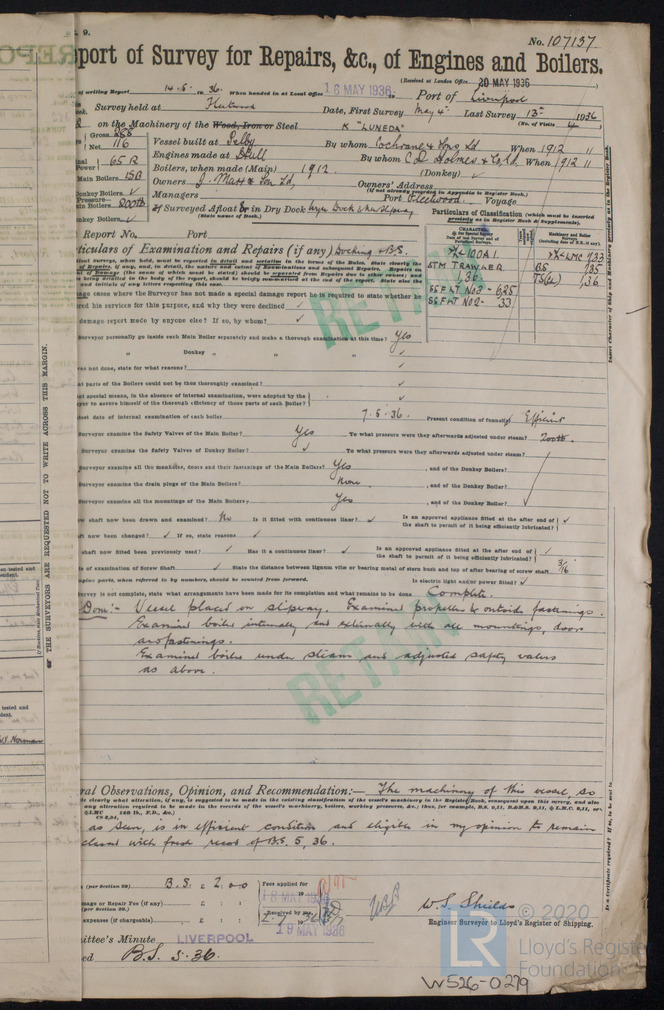 No. 107137
port of Survey for Repairs, &c., of Engines and Boilers.
(Received at London Office 20 MAY 1936
of writing Report 14.5. 1936. When handed in at Local Office 16 MAY 1936 Port of Liverpool
Survey held at Fleetwood Date, First Survey May 4th Last Survey 13th 1936
(No. of Visits 4)
on the Machinery of the Wood, Iron or Steel K "LUNEDA"
Gross 288
Net 116
Vessel built at Selby By whom Cochrane & Sons Ld When 1912 11
65 R
Engines made at Hull By whom C.D. Holmes & Co Ld. When 1912 11
Main Boilers 1SB
Boilers, when made (Main) 1912 (Donkey) ✓
Donkey Boilers ✓
Owners J. Marr & Son Ld, Owners' Address
(If not already recorded in Appendix to Register Book.)
Pressure—
Main Boilers 200lb
Managers Port Fleetwood Voyage
Donkey Boilers ✓
If Surveyed Afloat or in Dry Dock
(State name of Dock.)
Particulars of Classification (which must be inserted precisely as in Register Book & Supplements).
Report No. Port
ticulars of Examination and Repairs (if any) Docking & BS
100A1
STM TRAWLER
1,36
SS FWT No3 - 6,25
SS FWT No2 - 33
LMC 7,33
BS 7,35
TS(CL) 1,36
age cases where the Surveyor has not made a special damage report he is required to state whether he
red his services for this purpose, and why they were declined ✓
damage report made by anyone else? If so, by whom? ✓
Surveyor personally go inside each Main Boiler separately and make a thorough examination at this time? Yes
" Donkey " " " ✓
as not done, state for what reasons? ✓
at parts of the Boilers could not be thus thoroughly examined? ✓
at special means, in the absence of internal examination, were adopted by the
yor to assure himself of the thorough efficiency of those parts of each Boiler? ✓
est date of internal examination of each boiler 7.5.36. Present condition of funnel(s) Efficient
Surveyor examine the Safety Valves of the Main Boiler? Yes To what pressure were they afterwards adjusted under steam? 200lb.
Surveyor examine the Safety Valves of Donkey Boiler? ✓ To what pressure were they afterwards adjusted under steam?
Surveyor examine all the manholes, doors and their fastenings of the Main Boilers? Yes , and of the Donkey Boilers?
Surveyor examine the drain plugs of the Main Boilers? None , and of the Donkey Boiler?
Surveyor examine all the mountings of the Main Boilers? Yes , and of the Donkey Boiler?
w shaft now been drawn and examined? No Is it fitted with continuous liner? ✓ Is an approved appliance fitted at the after end of the shaft to permit of it being efficiently lubricated? ✓
ft now been changed? ✓ If so, state reasons ✓
shaft now fitted been previously used? ✓ Has it a continuous liner? ✓ Is an approved appliance fitted at the after end of the shaft to permit of it being efficiently lubricated? ✓
te of examination of Screw Shaft ✓ State the distance between lignum vitæ or bearing metal of stern bush and top of after bearing of screw shaft 3/16
ngine parts, when referred to by numbers, should be counted from forward. Is electric light and/or power fitted? ✓
survey is not complete, state what arrangements have been made for its completion and what remains to be done Complete.
Done:- Vessel placed on slipway. Examined propeller & outside fastenings.
Examined boiler internally and externally with all mountings, doors
and fastenings.
Examined boiler under steam and adjusted safety valves
as above.
RETAIN
RETAIN
THE SURVEYORS ARE REQUESTED NOT TO WRITE ACROSS THIS MARGIN.
ral Observations, Opinion, and Recommendation:— The machinery of this vessel, so
as seen, is in efficient condition and eligible in my opinion to remain
classed with fresh record of B.S. 5, 36.
(per Section 29) B.S. £ 2.0.0 Fees applied for
18 MAY 1936
mage or Repair Fee (if any) £ : :
(per Section 29.)
Received by me,
xpenses (if chargeable) £ : :
19 MAY 1936
W.S. Shields
Engineer Surveyor to Lloyd's Register of Shipping.
ittee's Minute LIVERPOOL
ed B.S. 5.36.
© 2020
LR
Lloyd's Register
Foundation
W526-0279